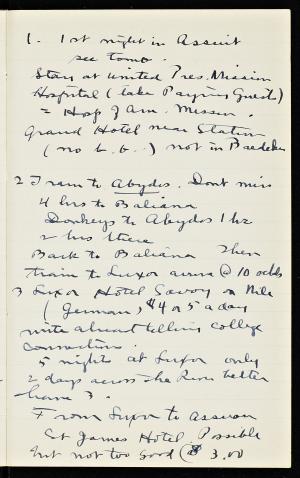 1. 1st night in Assiut
see tomb.
Stay at United Pres. Mission
Hospital (take Paying Guests)
= Hosp of Am. Mission.
Grand Hotel near Station
(no b.b.) not in Baedeker
2 Train to Abydos. Dont miss
4 hrs to Baliana
Donkeys to Abydos 1 hr
2 hrs there
Back to Baliana Then
train to Luxor arrive @ 10 oclk
3 Luxor Hotel Savoy on Nile
(German) $4 or 5 a day
write ahead telling College
Connection.
5 nights at Luxor only
2 days across the River better
have 3.
From Luxor to Assuan
St James Hotel Possible
but not too good @ $3.00